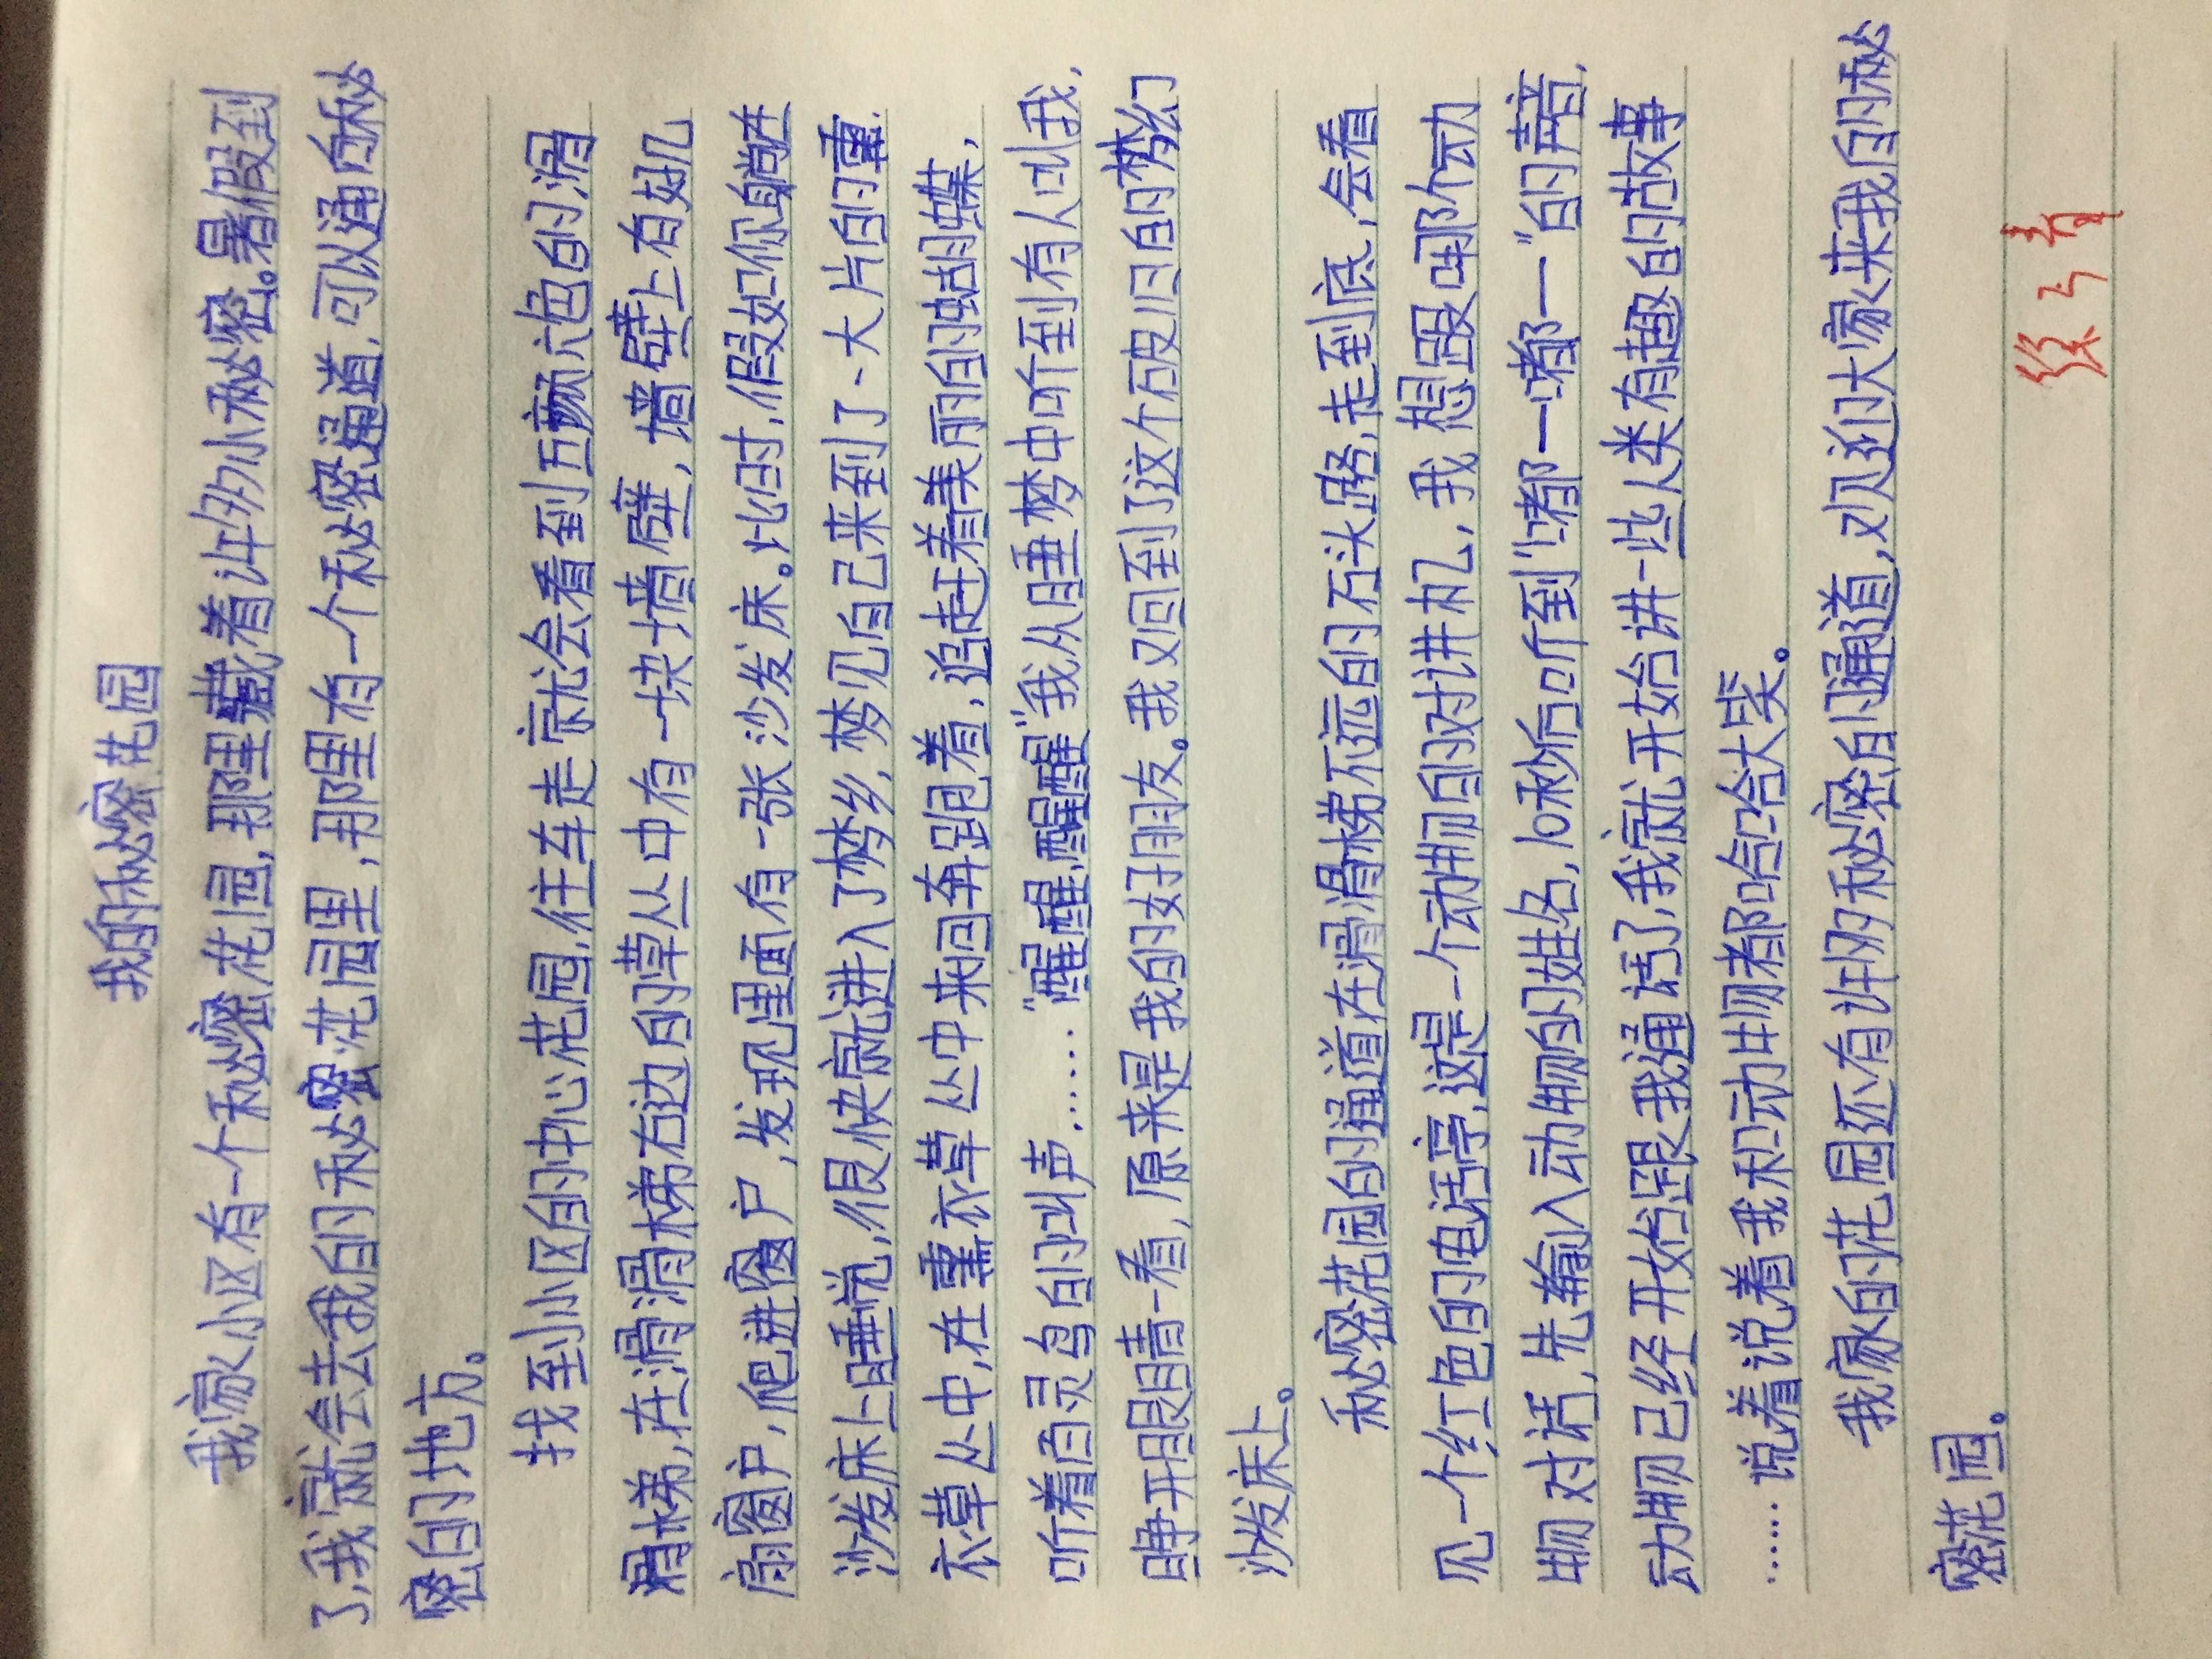 我的秘密花园
我家小区有一个秘密花园,那里藏着许多小秘密。暑假到
了,我就会去我的秘密花园里,那里有一个秘密通道,可以通向秘
密的地方。
找到小区的中心花园,往车走就会看到五颜六色的滑
滑梯,在滑滑梯右边的草丛中有一块墙壁,墙壁上有好几
扇窗户,爬进窗户,发现里面有一张沙发床。比时,假如你躺在
沙发床上睡觉,很快就进入了梦乡,梦见自己来到了一大片的薰
衣草丛中,在薰衣草丛中来回奔跑着,追赶着美丽的蝴蝶,
听着百灵鸟的叫声……“醒醒,醒醒”我从睡梦中听到有人叫我,
睁开眼睛一看,原来是我的好朋友。我又回到了这个破旧的梦幻
沙发床上。
秘密花园的通道在滑滑梯不远的石头路,走到底,会看
见一个红色的电话亭,这是一个动物的对讲机,我想跟哪个动
物对话,先输入动物的姓名,10秒后听到“嘟—嘟—嘟—”的声音,
动物已经开始跟我通话了,我就开始讲一些人类有趣的故事
……说着说着我和动物都哈哈大笑。
我家的花园还有许多秘密的通道,欢迎大家来我的秘
密花园。